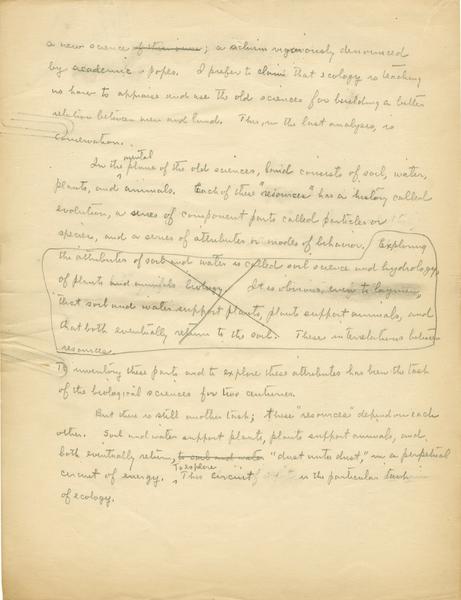 a new science of their own; a claim vigorously denounced
by academic popes. I prefer to claim that ecology is teaching
us how to appraise and use the old sciences for building a better
relation between men and land. This, in the last analysis, is
conservation.
In the mental plans of the old sciences, land consists of soil, water,
plants, and animals. Each of these "resources" has a history called
evolution, a series of component parts called particles or
species, and a series of attributes or modes of behavior. Exploring
the attributes of soil and water is called soil science and hydrology,
of plants and animals biology. It is obvious, even to laymen,
that soil and water support plants, plants support animals, and
that both eventually return to the soil. These interrelations between
resources
To inventory these parts and to explore these attributes has been the task
of the biological sciences for two centuries.
But there is still another task; these "resources" depend on each
other. Soil and water support plants, plants support animals, and
both eventually return, to soil and water "dust unto dust," in a perpetual
circuit of energy. To explore This circuit is the particular task
of ecology.